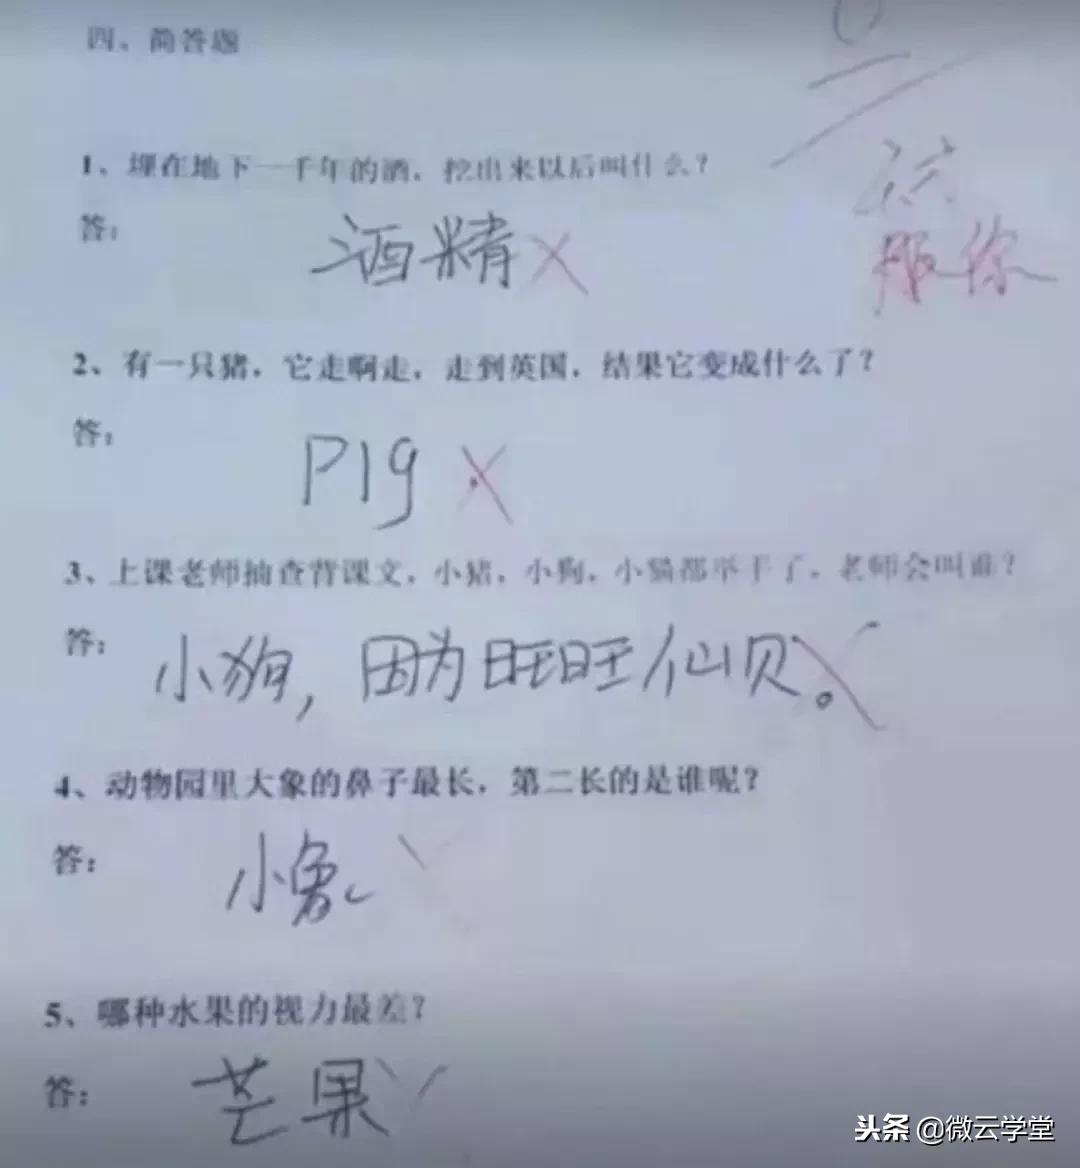 四、简答题
0
1、埋在地下一千年的酒，挖出来以后叫什么？
答：
酒精
服你
2、有一只猪，它走啊走，走到英国，结果它变成什么了？
答：
PIg
3、上课老师抽查背课文，小猪，小狗，小猫都举手了，老师会叫谁？
答：
小狗，因为旺旺仙贝。
4、动物园里大象的鼻子最长，第二长的是谁呢？
答：
小象
5、哪种水果的视力最差？
答：
芒果
头条 @微云学堂